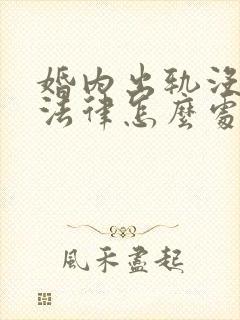 婚内出轨没
法律怎麼處
風禾盡起